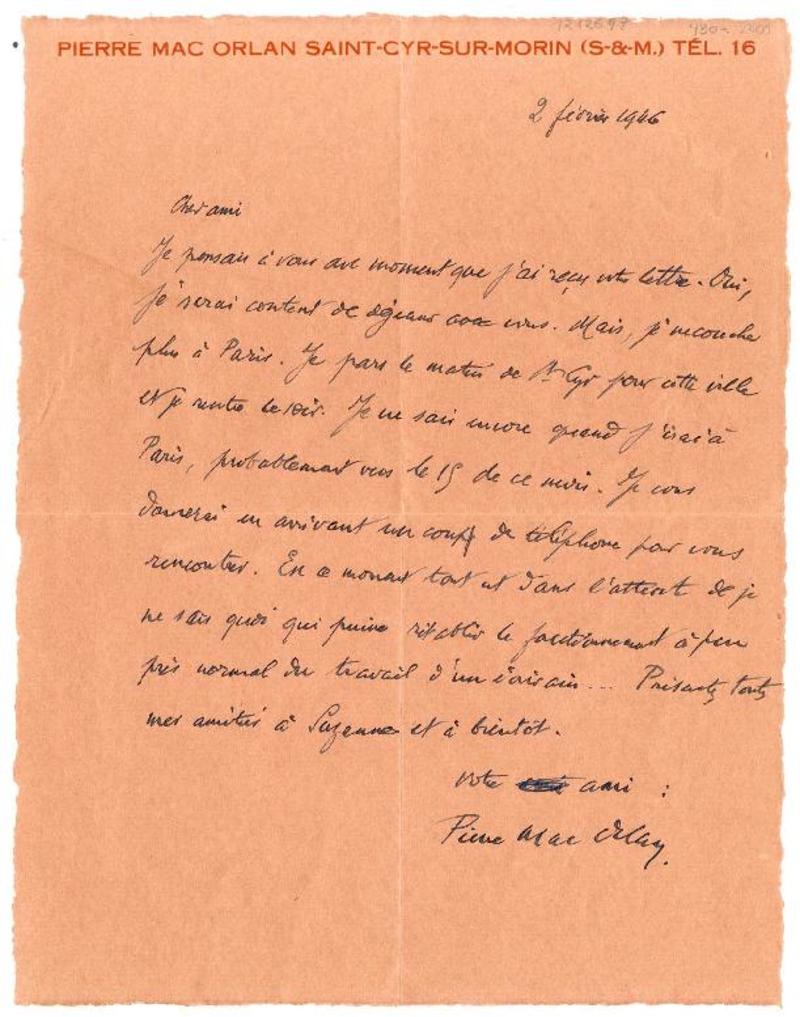 PIERRE MAC ORLAN SAINT-CYR-SUR-MORIN (S-&-M.) TÉL. 16
2 février 1946
Cher ami
Je pensais à vous au moment que j'ai reçu votre lettre. Oui,
je serai content de déjeuner avec vous. Mais, je ne couche
plus à Paris. Je pars le matin de St Cyr pour cette ville
et je rentre le soir. Je ne sais encore quand j'irai à
Paris, probablement vers le 15 de ce mois. Je vous
donnerai en arrivant un coup de téléphone pour vous
rencontrer. En ce moment tout est dans l'attente de je
ne sais quoi qui puisse rétablir le fonctionnement à peu
près normal du travail d'un écrivain... Présentez toutes
mes amitiés à Suzanne et à bientôt.
votre ami :
Pierre Mac Orlan.